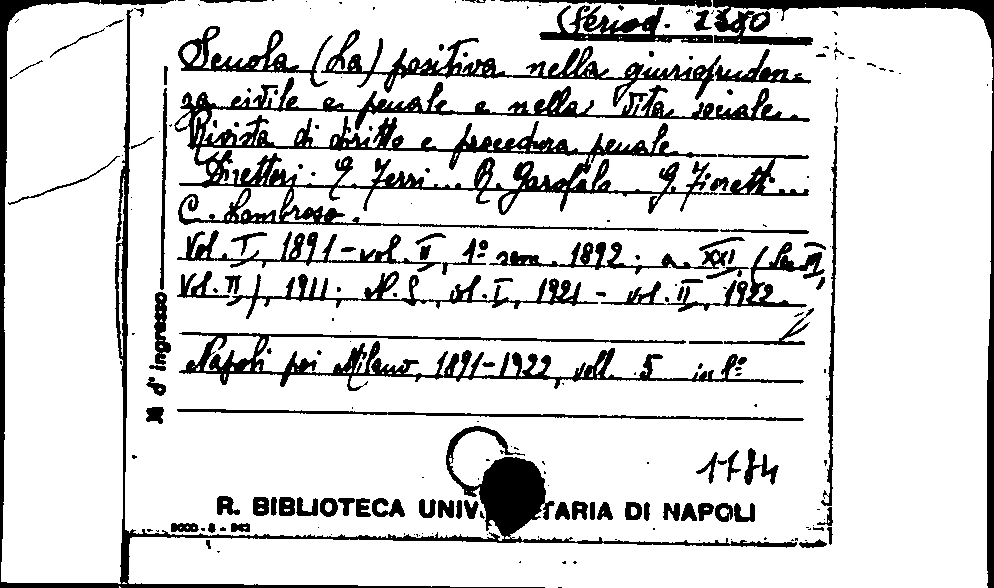 (Period. 1380
Scuola (La) positiva nella giurispruden-
za civile e penale e nella vita sociale.
Rivista di diritto e procedura penale.
Direttori: E. Ferri... R. Garofalo.. G. Fioretti...
C. Lombroso.
Vol. I, 1891 - vol. II, 1º sem. 1892; a. XXI, (Ser.
Vol. II), 1911; N. S., vol. I, 1921 - vol. II, 1922.
Napoli poi Milano, 1891-1922, voll. 5 in 8º
1784
N d' ingresso
R. BIBLIOTECA DI NAPOLI